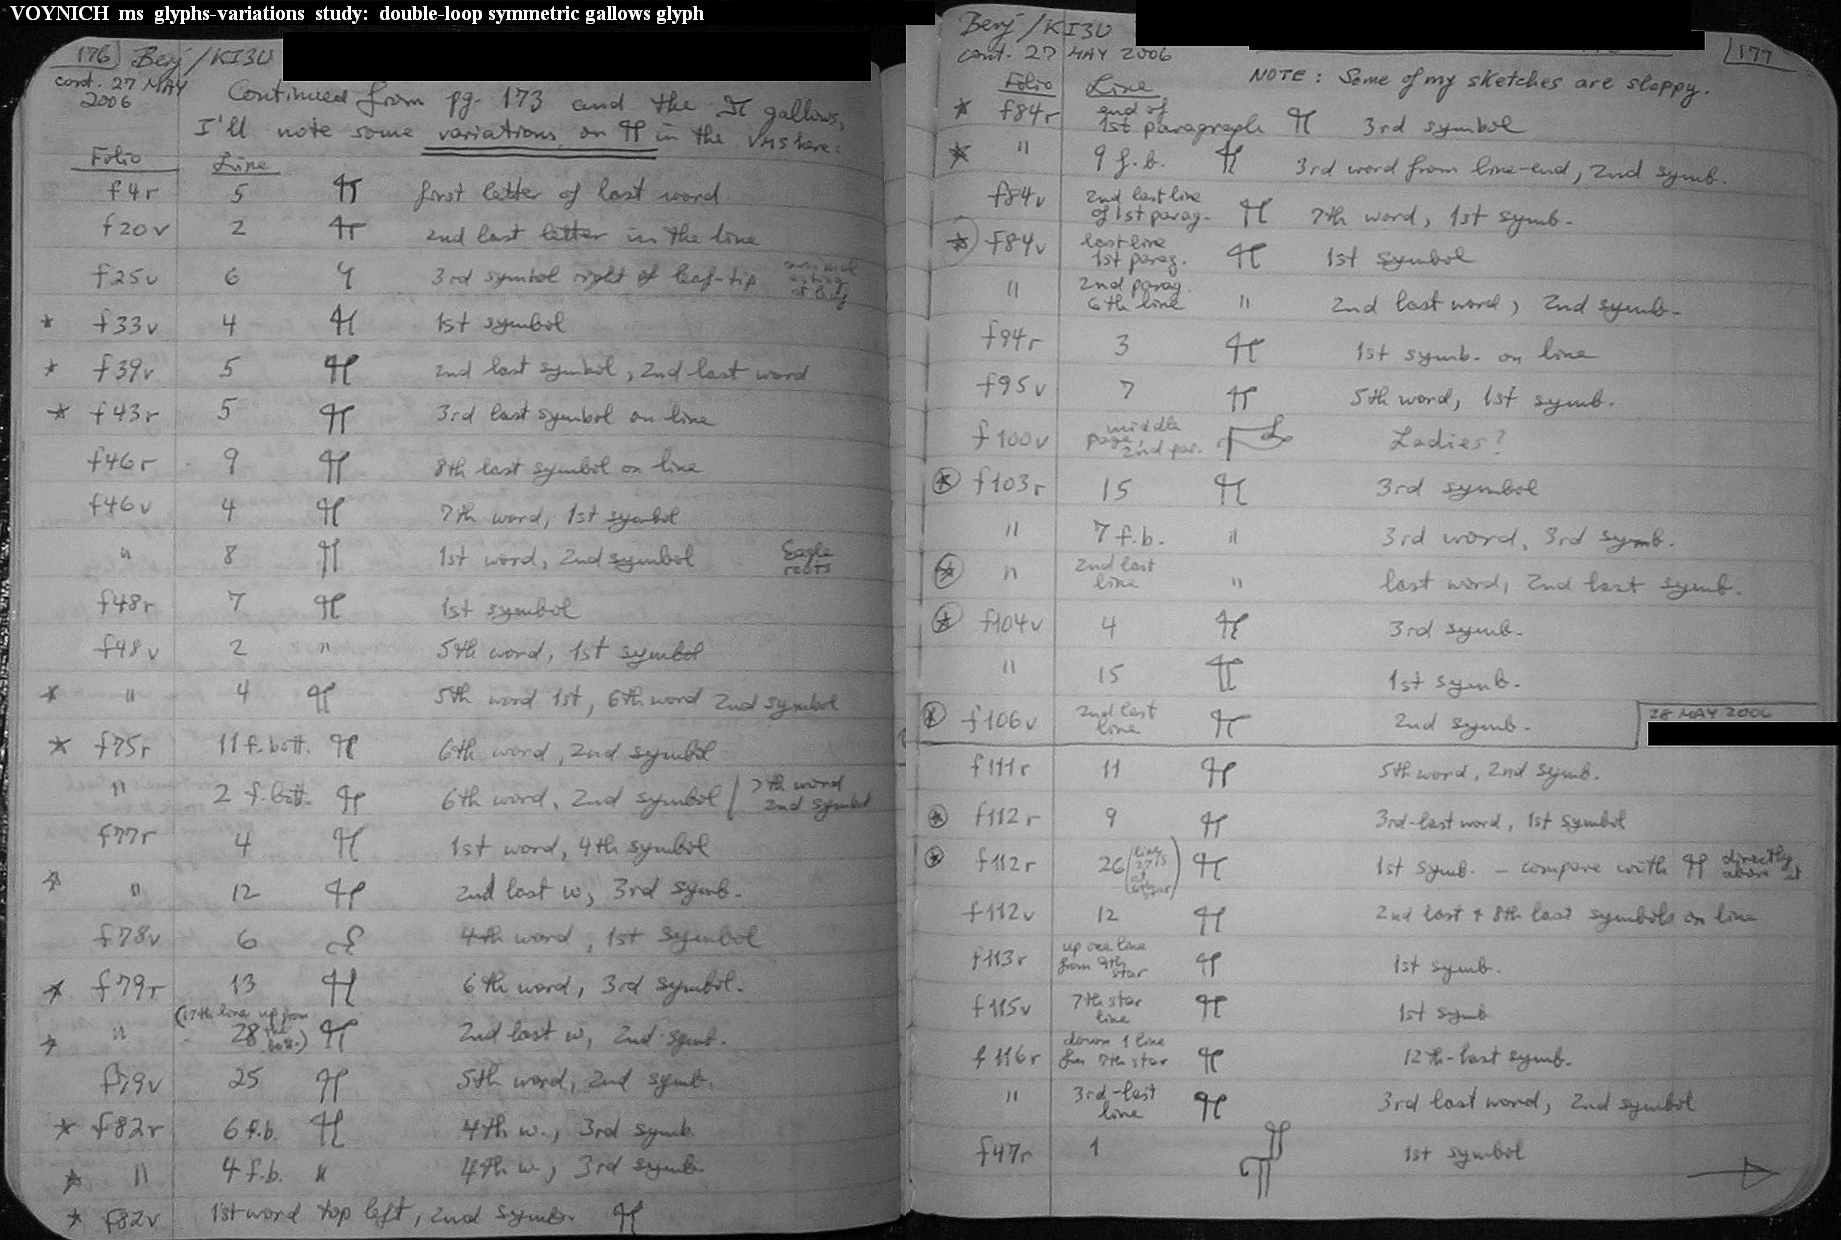 VOYNICH ms glyphs-variations study: double-loop symmetric gallows glyph
176 Berj / KI3U
cont. 27 MAY 2006
Continued from pg. 173 and the gallows,
I'll note some variations on in the VMS here:
Folio Line
f4r 5 first letter of last word
f20v 2 2nd last letter in the line
f25v 6 3rd symbol right of leaf-tip
* f33v 4 1st symbol
* f39v 5 2nd last symbol, 2nd last word
* f43r 5 3rd last symbol on line
f46r 9 8th last symbol on line
f46v 4 7th word, 1st symbol
" 8 1st word, 2nd symbol Eagle roots
f48r 7 1st symbol
f48v 2 " 5th word, 1st symbol
* " 4 5th word 1st, 6th word 2nd symbol
* f75r 11 f. bott. 6th word, 2nd symbol
" 2 f. bott. 6th word, 2nd symbol / 7th word 2nd symbol
f77r 4 1st word, 4th symbol
* " 12 2nd last w, 3rd symb.
f78v 6 4th word, 1st symbol
* f79r 13 6th word, 3rd symbol.
* " 28 (17th line up from the bott.) 2nd last w, 2nd symb.
f79v 25 5th word, 2nd symb.
* f82r 6 f.b. 4th w., 3rd symb.
* " 4 f.b. " 4th w., 3rd symb.
* f82v 1st word top left, 2nd symb.
Berj / KI3U 177
cont. 27 MAY 2006
NOTE: Some of my sketches are sloppy.
Folio Line
* f84r end of 1st paragraph 3rd symbol
* " 9 f.b. 3rd word from line-end, 2nd symb.
f84v 2nd last line of 1st parag. 7th word, 1st symb.
* f84v last line 1st parag. 1st symbol
" 2nd parag. 6th line " 2nd last word, 2nd symb.
f94r 3 1st symb. on line
f95v 7 5th word, 1st symb.
f100v middle page, 2nd par. Ladies?
* f103r 15 3rd symbol
" 7 f.b. " 3rd word, 3rd symb.
* " 2nd last line " last word, 2nd last symb.
* f104v 4 3rd symb.
" 15 1st symb.
* f106v 2nd last line 2nd symb.
28 MAY 2006
f111r 11 5th word, 2nd symb.
* f112r 9 3rd-last word, 1st symbol
* f112r 26 1st symb. - compare with directly above it
f112v 12 2nd last & 8th last symbols on line
f113r up one line from 9th star 1st symb.
f115v 7th star line 1st symb
f116r down 1 line fm 7th star 12th-last symb.
" 3rd-last line 3rd last word, 2nd symbol
f47r 1 1st symbol